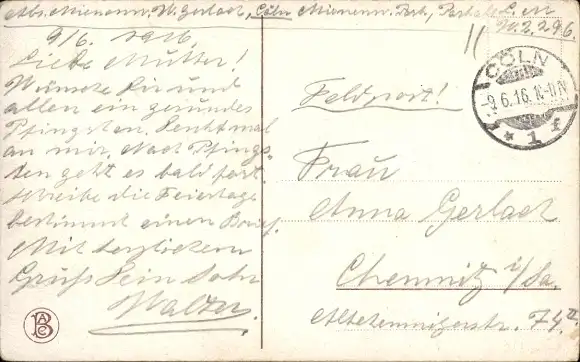 Abs. Minenw. W. Gerlach, Cöln Minenw. Park,
9/6. 1916.
Liebe Mutter!
Wünsche Dir und
allen ein gesundes
Pfingsten. Denkt mal
an mir, Nach Pfings-
ten geht es bald fort.
schreibe die Feiertage
bestimmt einen Brief.
Mit herzlichem
Gruß Dein Sohn
Walter.
Feldpost!
CÖLN
-9.6.16. 10-11 N
* 1 f
Frau
Anna Gerlach
Chemnitz i/Sa.
Altchemnitzerstr. 74 II